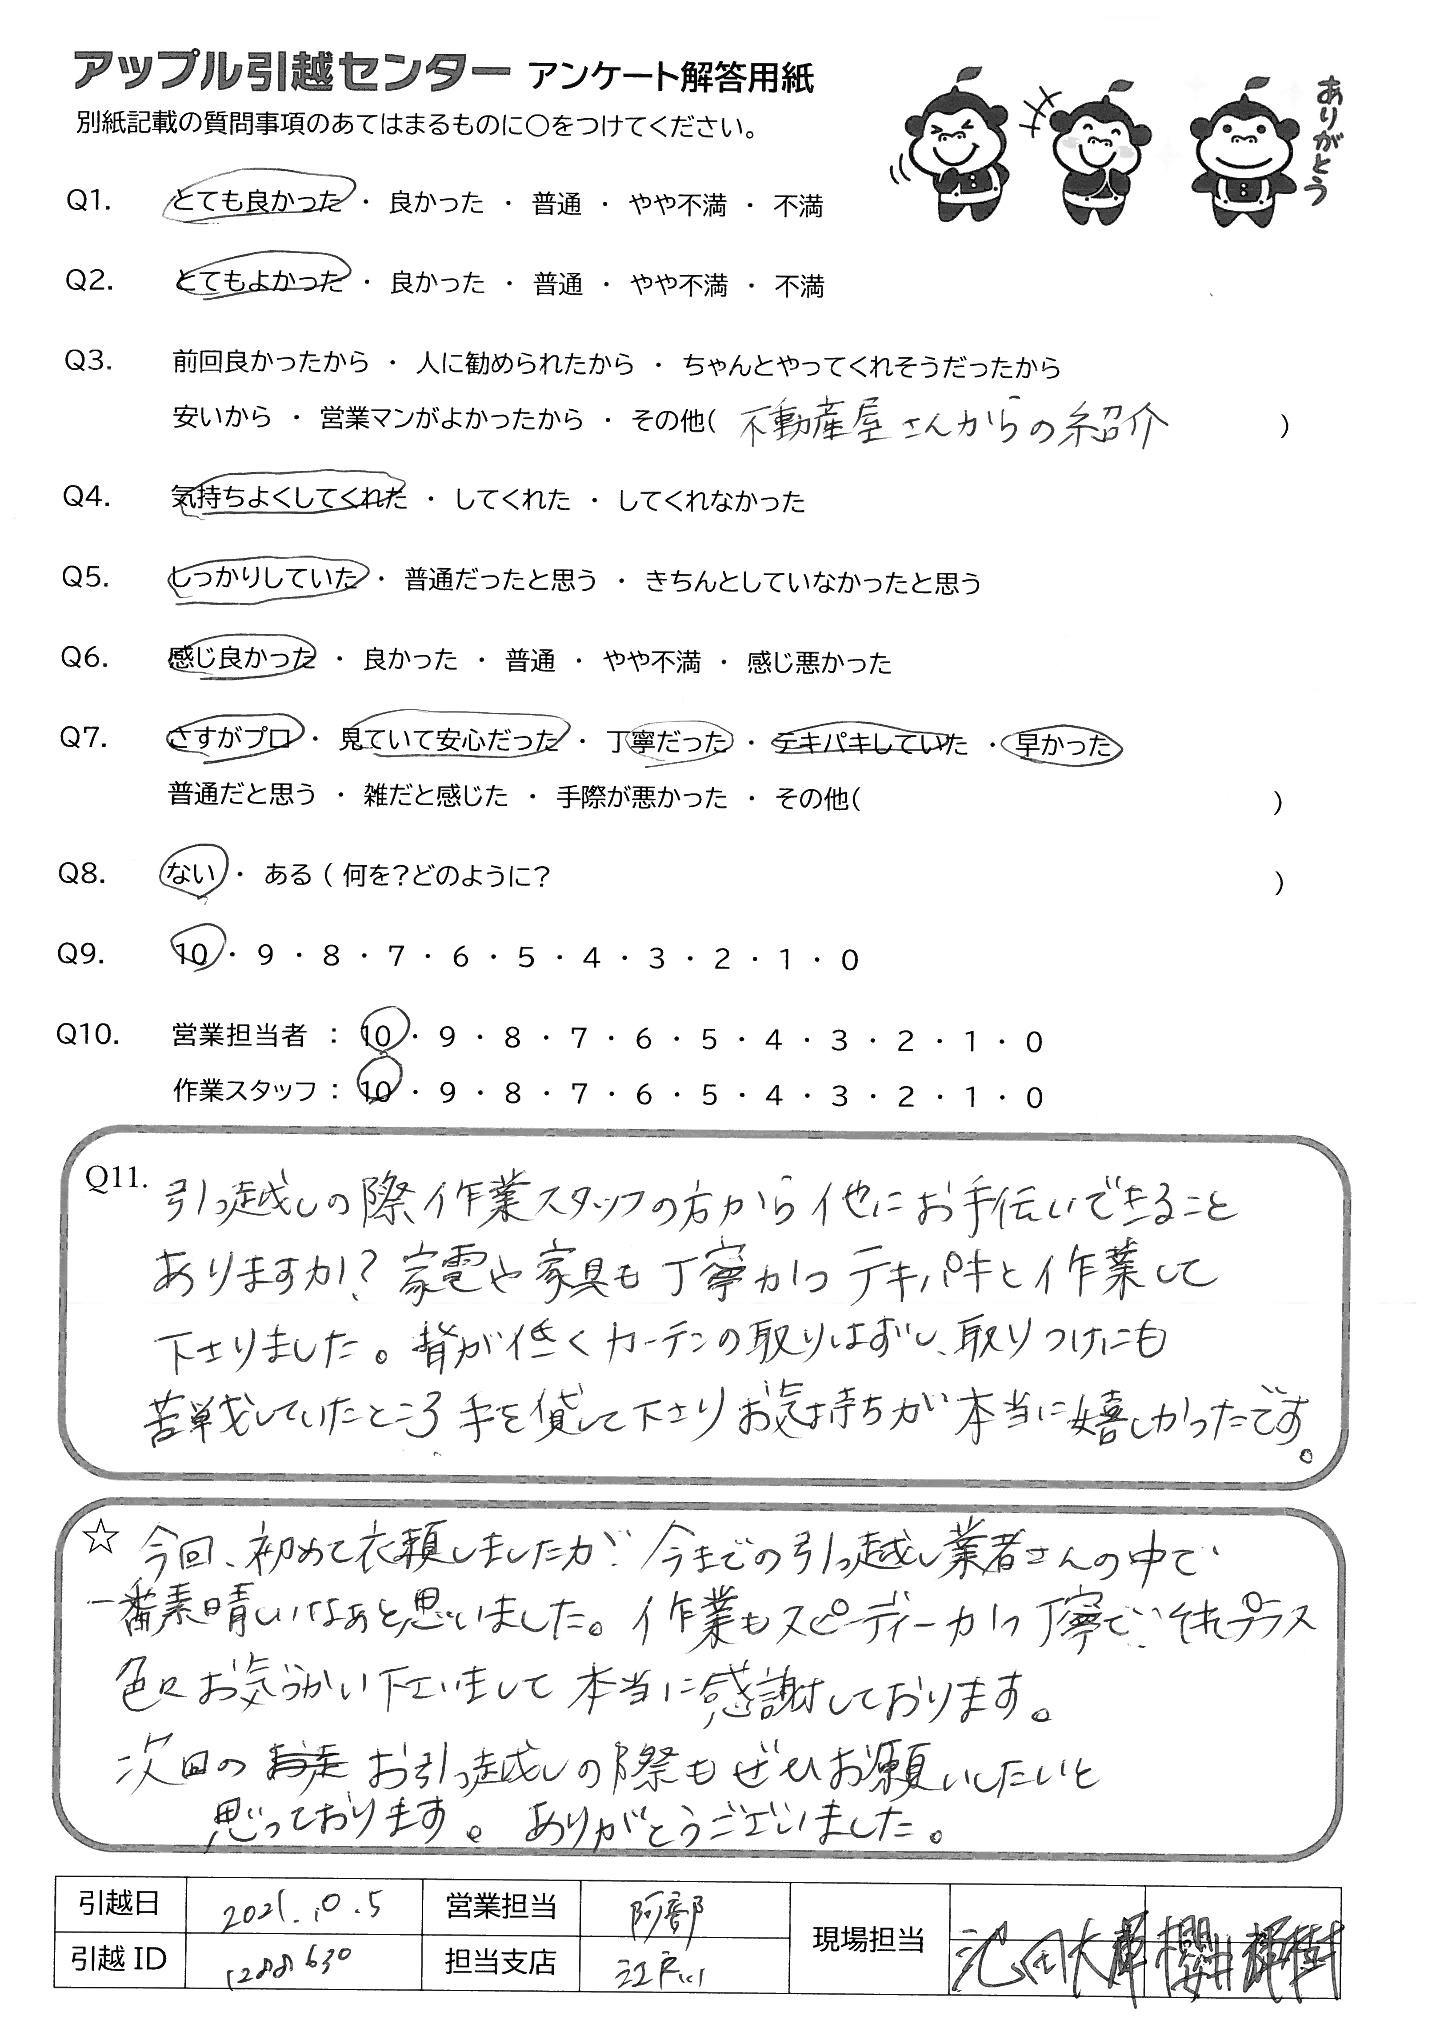 アップル引越センター アンケート解答用紙
別紙記載の質問事項のあてはまるものに○をつけてください。
ありがとう
Q1. とても良かった ・ 良かった ・ 普通 ・ やや不満 ・ 不満
Q2. とてもよかった ・ 良かった ・ 普通 ・ やや不満 ・ 不満
Q3. 前回良かったから ・ 人に勧められたから ・ ちゃんとやってくれそうだったから
安いから ・ 営業マンがよかったから ・ その他( 不動産屋さんからの紹介 )
Q4. 気持ちよくしてくれた ・ してくれた ・ してくれなかった
Q5. しっかりしていた ・ 普通だったと思う ・ きちんとしていなかったと思う
Q6. 感じ良かった ・ 良かった ・ 普通 ・ やや不満 ・ 感じ悪かった
Q7. さすがプロ ・ 見ていて安心だった ・ 丁寧だった ・ テキパキしていた ・ 早かった
普通だと思う ・ 雑だと感じた ・ 手際が悪かった ・ その他( )
Q8. ない ・ ある ( 何を?どのように? )
Q9. 10 ・ 9 ・ 8 ・ 7 ・ 6 ・ 5 ・ 4 ・ 3 ・ 2 ・ 1 ・ 0
Q10. 営業担当者 : 10 ・ 9 ・ 8 ・ 7 ・ 6 ・ 5 ・ 4 ・ 3 ・ 2 ・ 1 ・ 0
作業スタッフ : 10 ・ 9 ・ 8 ・ 7 ・ 6 ・ 5 ・ 4 ・ 3 ・ 2 ・ 1 ・ 0
Q11. 引っ越しの際作業スタッフの方から他にお手伝いできること
ありますか?家電や家具も丁寧かつテキパキと作業して
下さりました。背が低くカーテンの取りはずし、取りつけにも
苦戦していたところ手を貸して下さりお気持ちが本当に嬉しかったです。
☆ 今回、初めて衣頼しましたが今までの引っ越し業者さんの中で
一番素晴しいなぁと思いました。作業もスピーディーかつ丁寧で、それプラス
色々お気づかい下さいまして本当に感謝しております。
次回の お引っ越しの際もぜひお願いしたいと
思っております。ありがとうございました。
引越日 2021.10.5 営業担当 阿部 現場担当 池田大輝 櫻井輝樹
引越ID 1288630 担当支店 江戸川